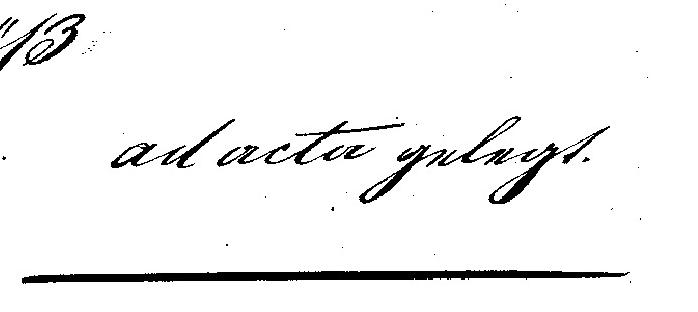 13
ad acta gelegt.